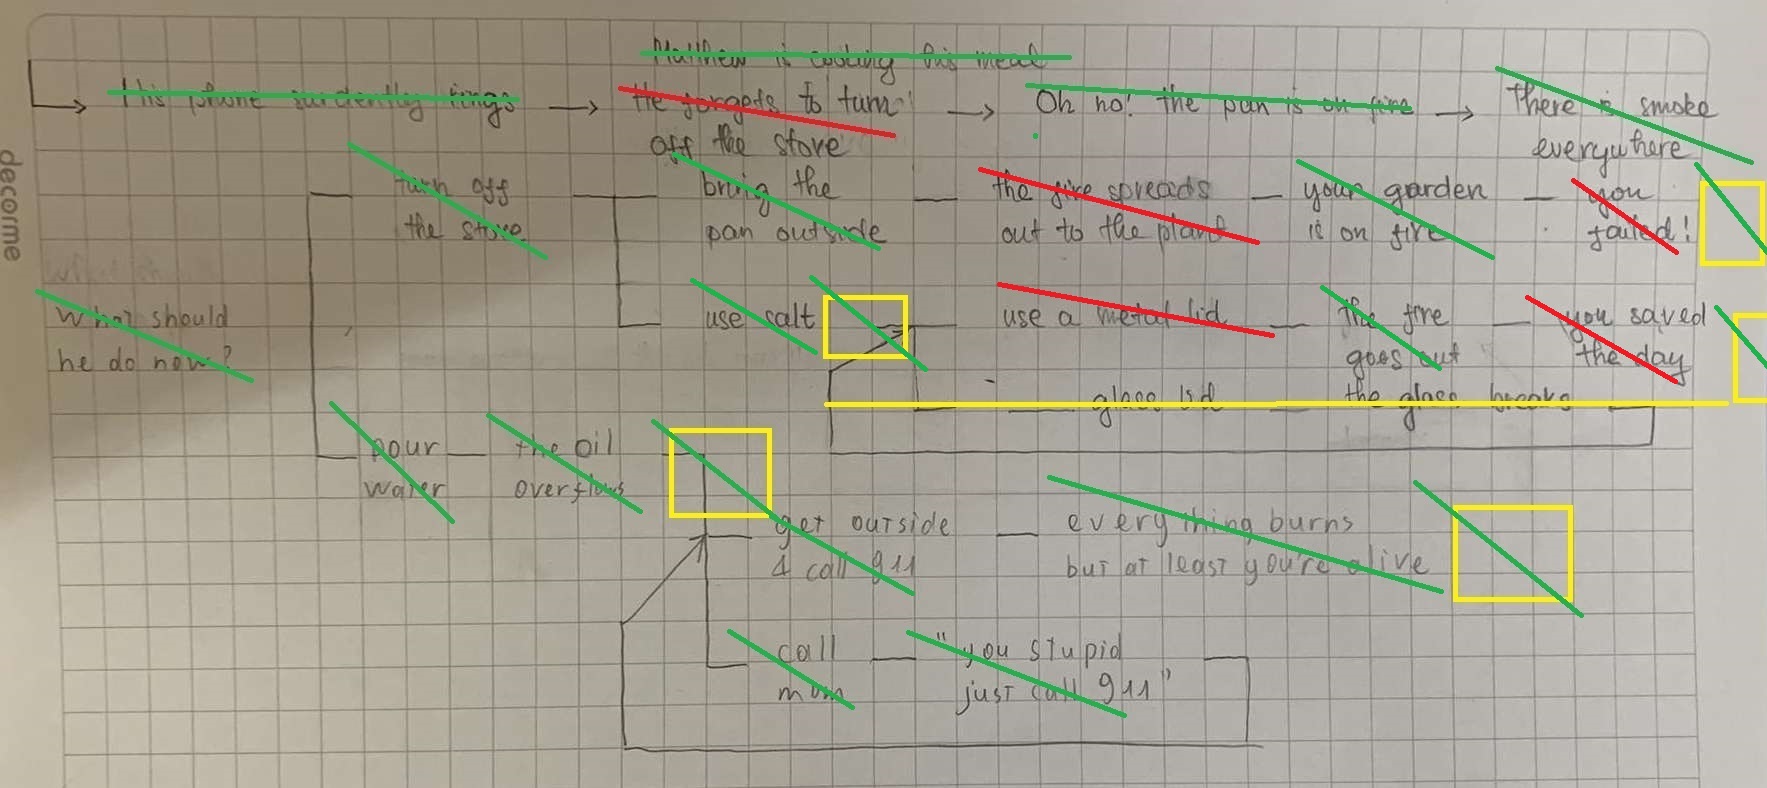 Matthew is cooking his meal
His phone surdently rings
He forgets to turn
off the store
Oh no! the pan is on fire
There is smoke
everywhere
turn off
the stove
bring the
pan outside
the fire spreads
out to the plant
your garden
is on fire
you
failed!
use salt
use a metal lid
the fire
goes out
you saved
the day
glass lid
the glass breaks
What should
he do now?
pour
water
the oil
overflows
get outside
& call 911
every thing burns
but at least you're alive
call
mum
"you stupid
just call 911"
decome